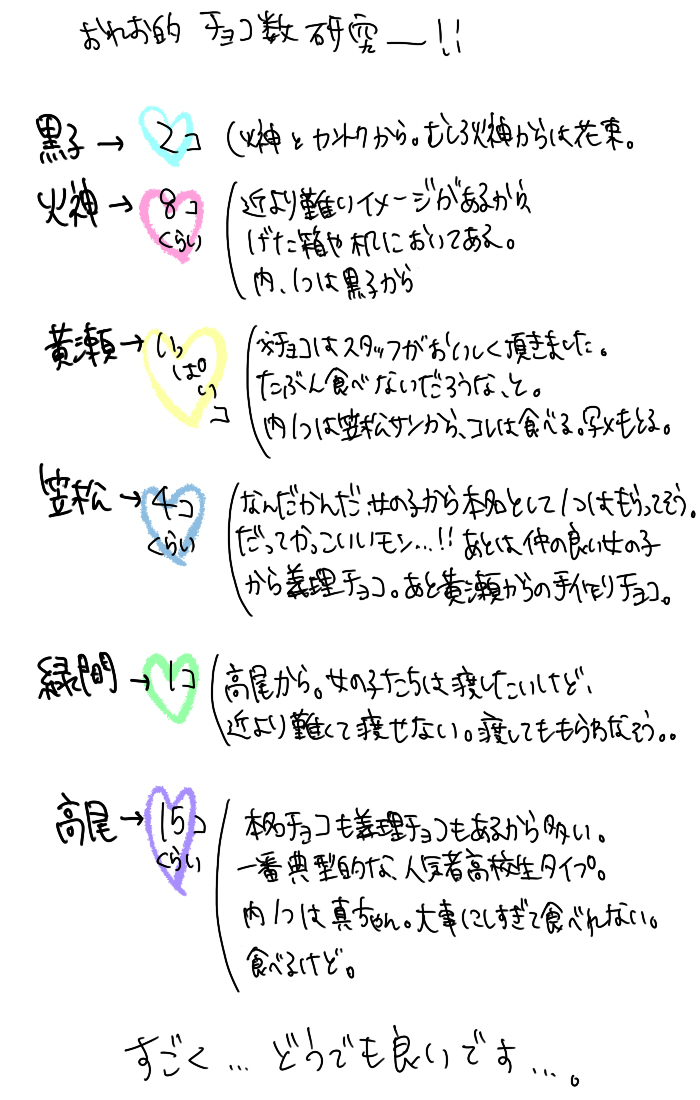 おれお的 チョコ数研究ー!!
黒子→ 2コ (火神とカントクから。むしろ火神からは花束。
火神→ 8コくらい (近より難いイメージがあるから、
げた箱や机においてある。
内、1つは黒子から
黄瀬→ いっぱいコ (※チョコはスタッフがおいしく頂きました。
たぶん食べないだろうな、と。
内1つは笠松サンから、コレは食べる。写メもとる。
笠松→ 4コくらい (なんだかんだ女の子から本命として1つはもらってそう。
だってかっこいいモン…!! あとは仲の良い女の子
から義理チョコ。あと黄瀬からの手作りチョコ。
緑間→ 1コ (高尾から。女の子たちは渡したいけど、
近より難くて渡せない。渡してももらわなそう。。
高尾→ 15コくらい (本命チョコも義理チョコもあるから多い。
一番典型的な、人気者高校生タイプ。
内1つは真ちゃん。大事にしすぎて食べれない。
食べるけど。
すごく…どうでも良いです…。